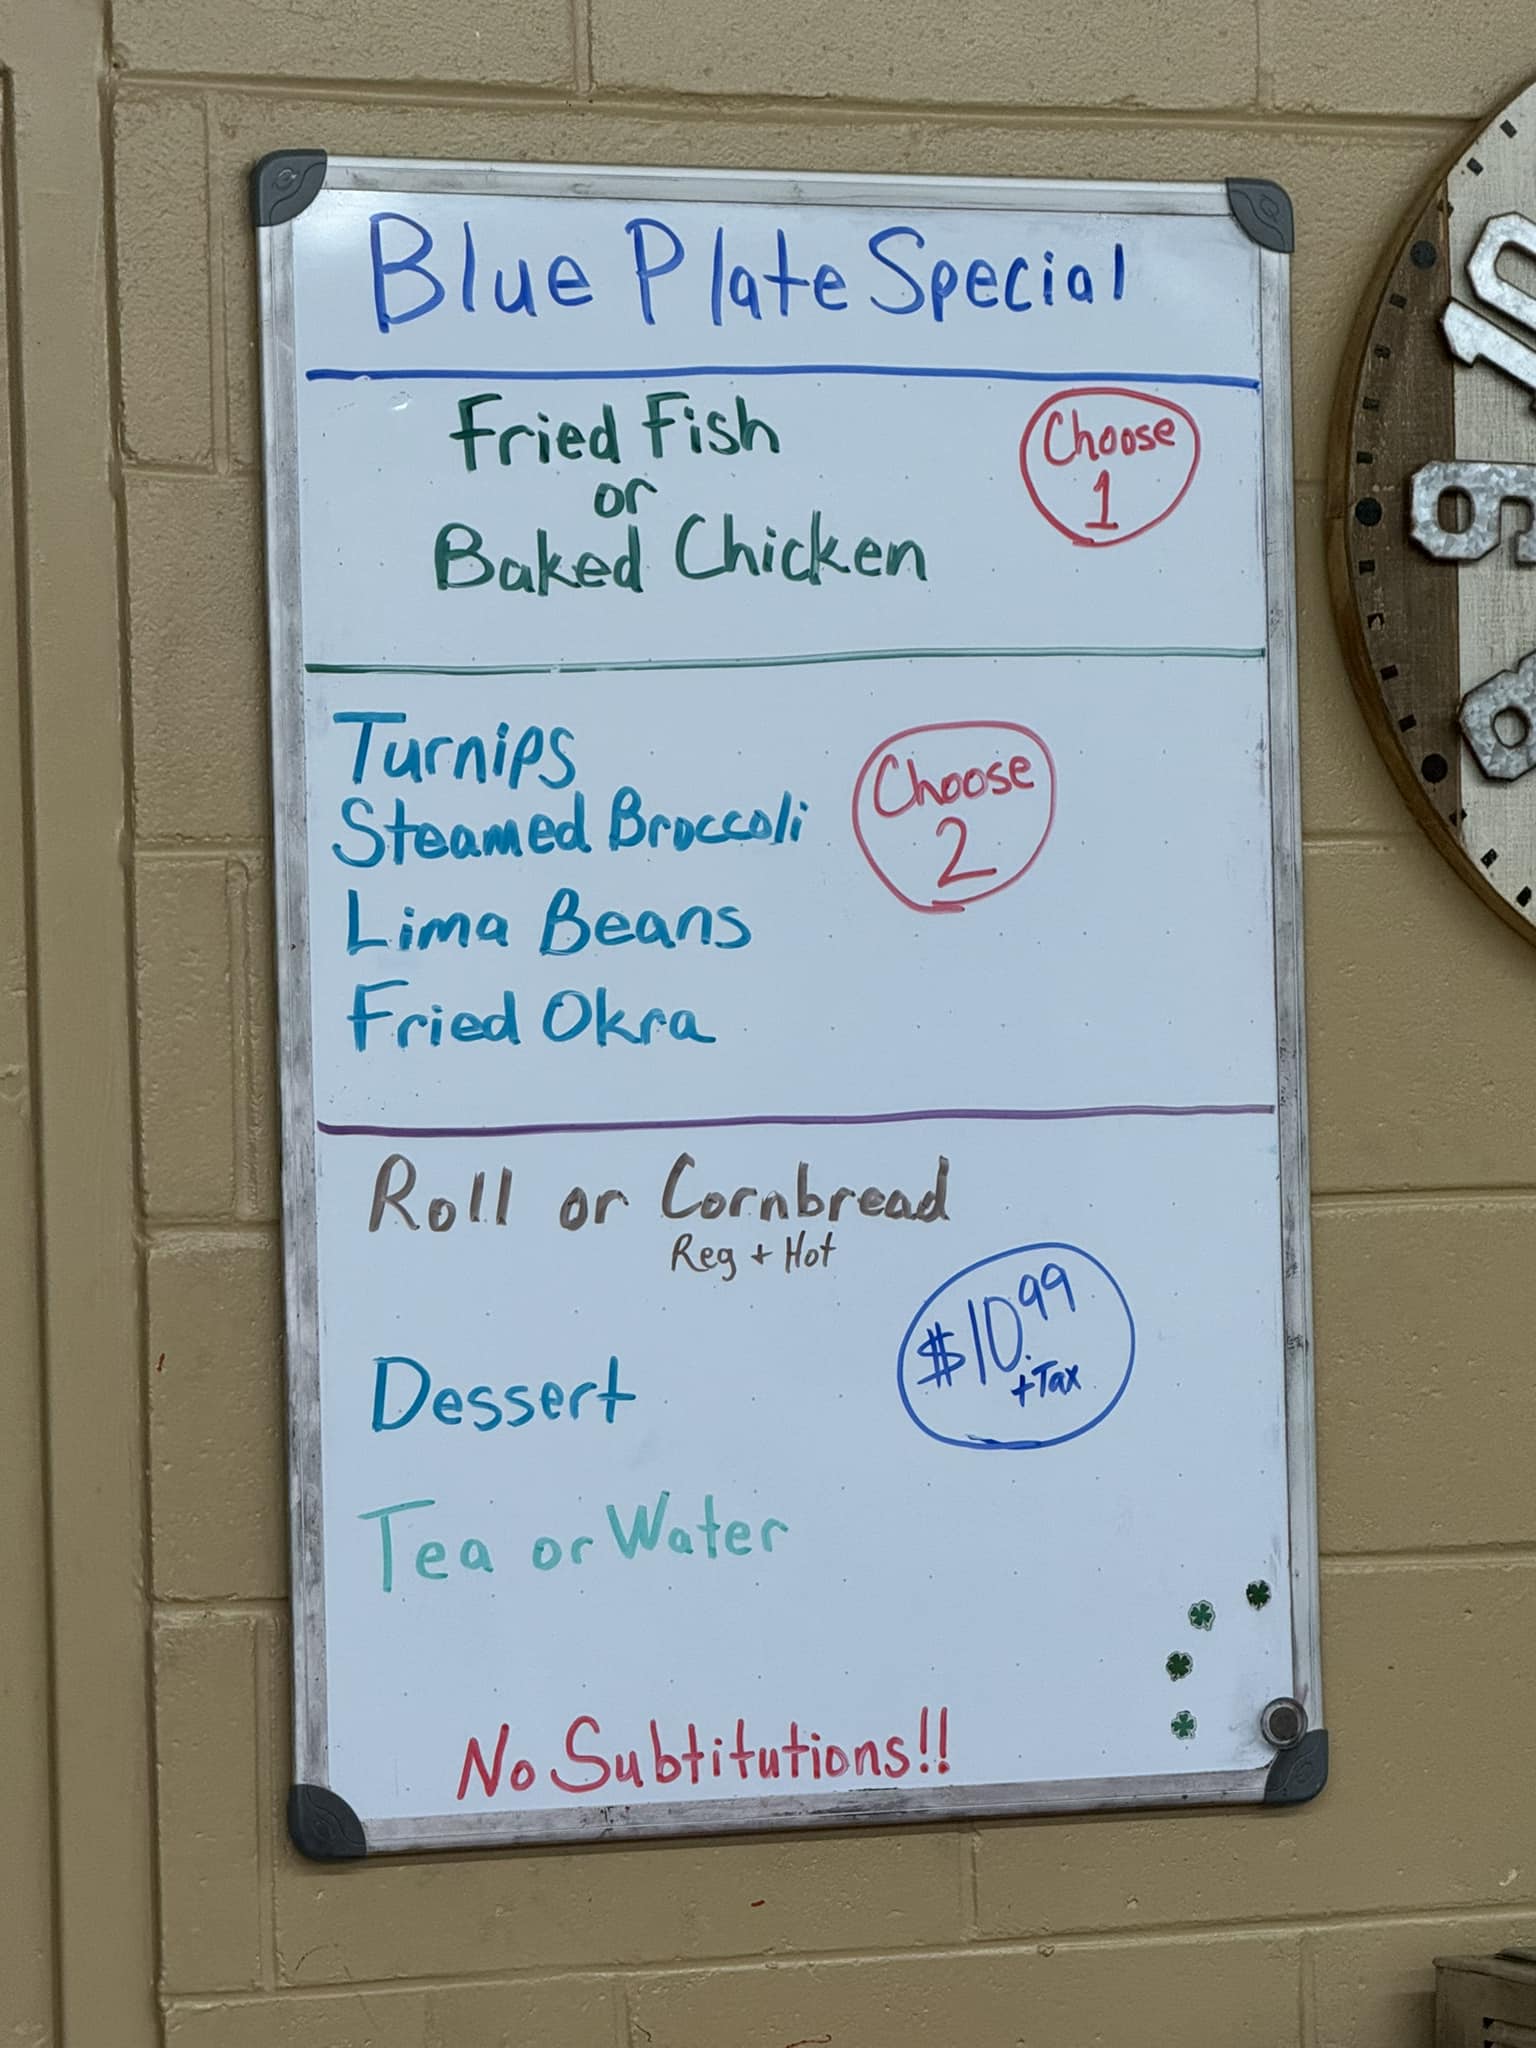 Blue Plate Special
Fried Fish
or
Baked Chicken
Choose
1
Turnips
Steamed Broccoli
Lima Beans
Fried Okra
Choose
2
Roll or Cornbread
Reg + Hot
$10.99
+Tax
Dessert
Tea or Water
No Subtitutions!!
10
9
8